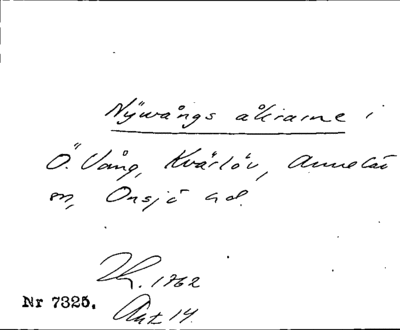 Nÿwångs åkrarne i
Ö. Vång, Kvärlöv, Annelöv
sn, Onsjö hd.
1762
Akt 14.
Nr 7325.